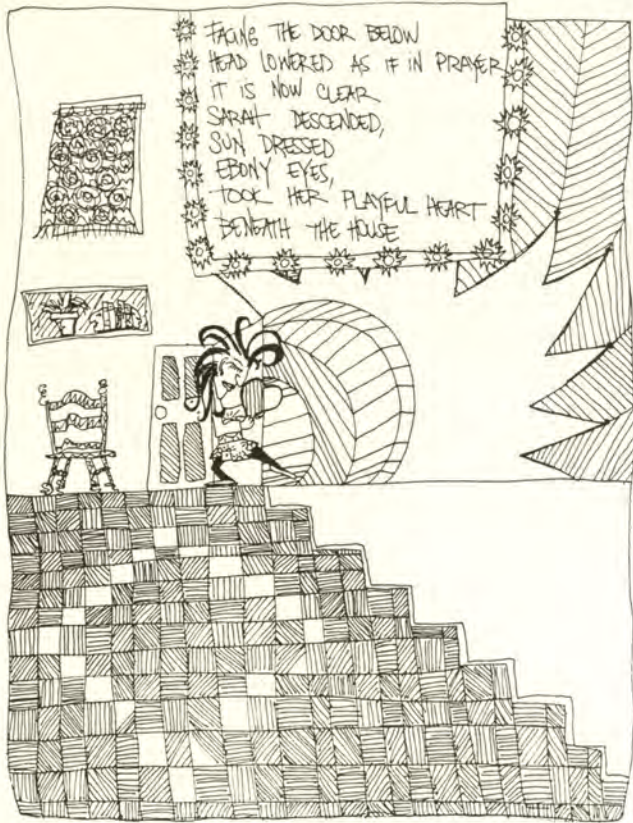 FACING THE DOOR BELOW
HEAD LOWERED AS IF IN PRAYER
IT IS NOW CLEAR
SARAH DESCENDED,
SUN DRESSED
EBONY EYES,
TOOK HER PLAYFUL HEART
BENEATH THE HOUSE